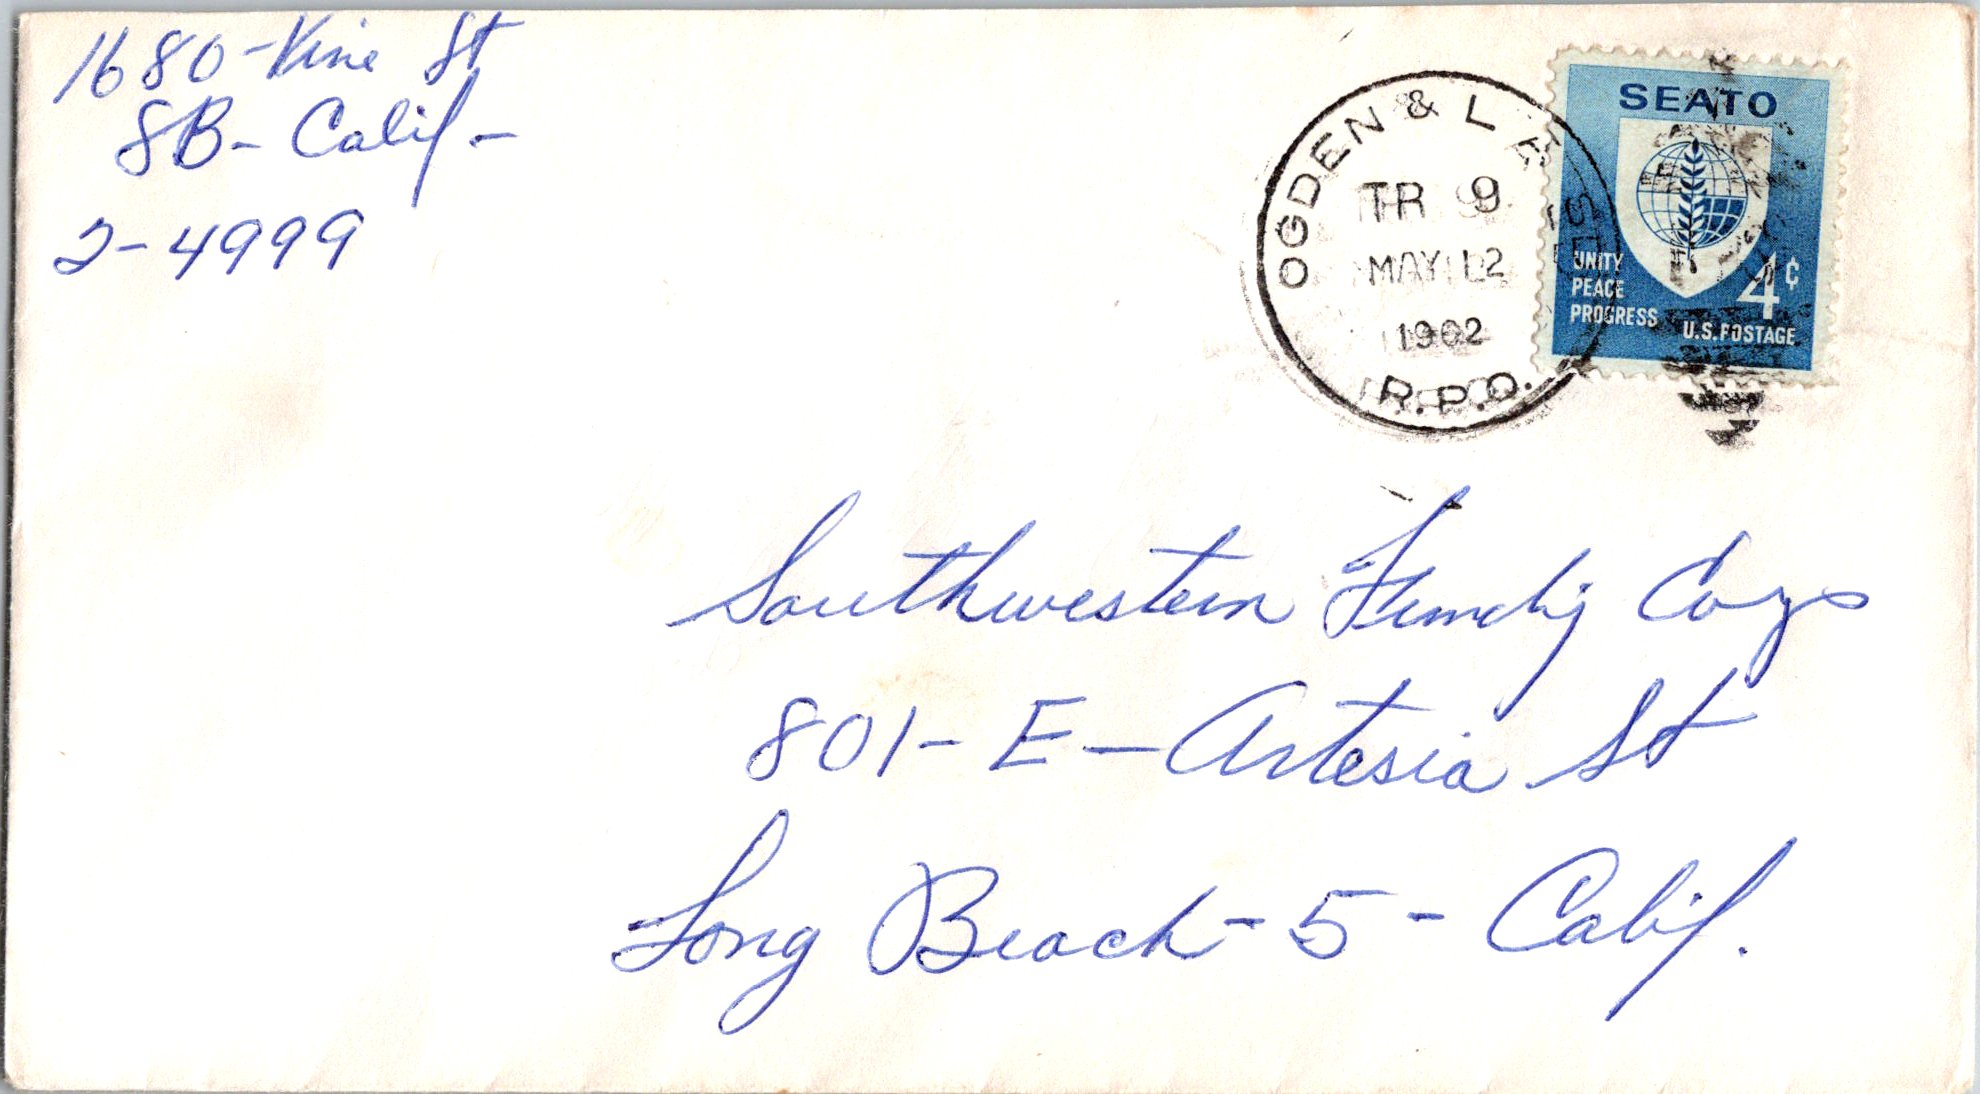 1680-Vine St
SB-Calif-
2-4999
OGDEN & L A
TR 9
MAY 12
1962
R.P.O.
SEATO
UNITY
PEACE
PROGRESS
4¢
U.S. POSTAGE
Southwestern Funding Corp
801- E - Artesia St
Long Beach - 5 - Calif.